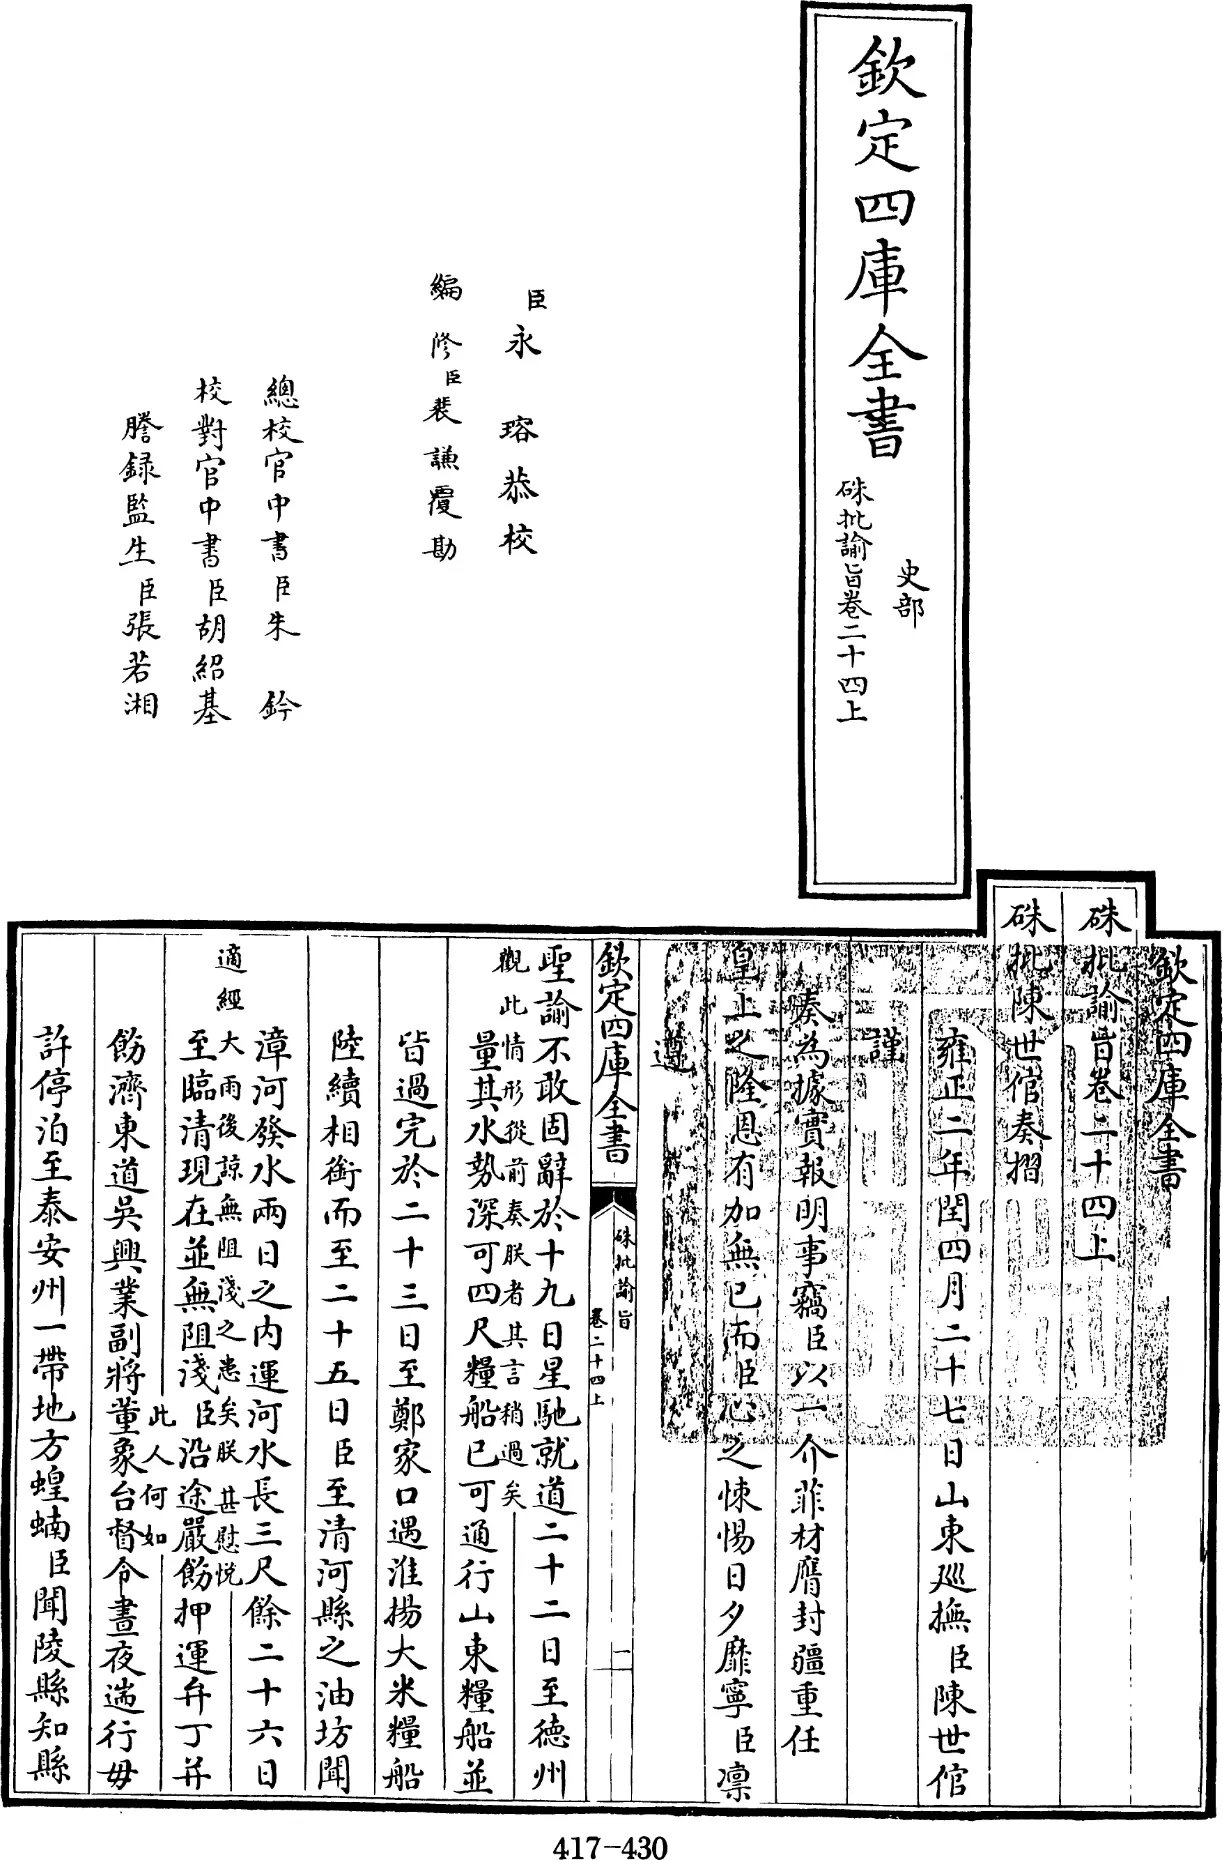 欽定四庫全書
史部
硃批諭旨卷二十四上
臣永瑢恭校
編修臣裴謙覆勘
總校官中書臣朱鈐
校對官中書臣胡紹基
謄録監生臣張若湘
欽定四庫全書
硃批諭旨卷二十四上
硃批陳世倌奏摺
雍正二年閏四月二十七日山東廵撫臣陳世倌
謹
奏為據實報明事竊臣以一介菲材膺封疆重任
皇上之隆恩有加無已而臣心之悚惕日夕靡寧臣凛
遵
欽定四庫全書
硃批諭旨
卷二十四上
一
聖諭不敢固辭於十九日星馳就道二十二日至德州
觀此情形從前奏朕者其言稍過矣
量其水勢深可四尺糧船已可通行山東糧船並
皆過完於二十三日至鄭家口遇淮揚大米糧船
陸續相銜而至二十五日臣至清河縣之油坊聞
漳河發水兩日之內運河水長三尺餘二十六日
適經大雨後諒無阻淺之患矣朕甚慰悅
至臨清現在並無阻淺臣沿途嚴飭押運弁丁并
此人何如
飭濟東道吳興業副將董象台督令晝夜遄行毋
許停泊至泰安州一帶地方蝗蝻臣聞陵縣知縣
417-430